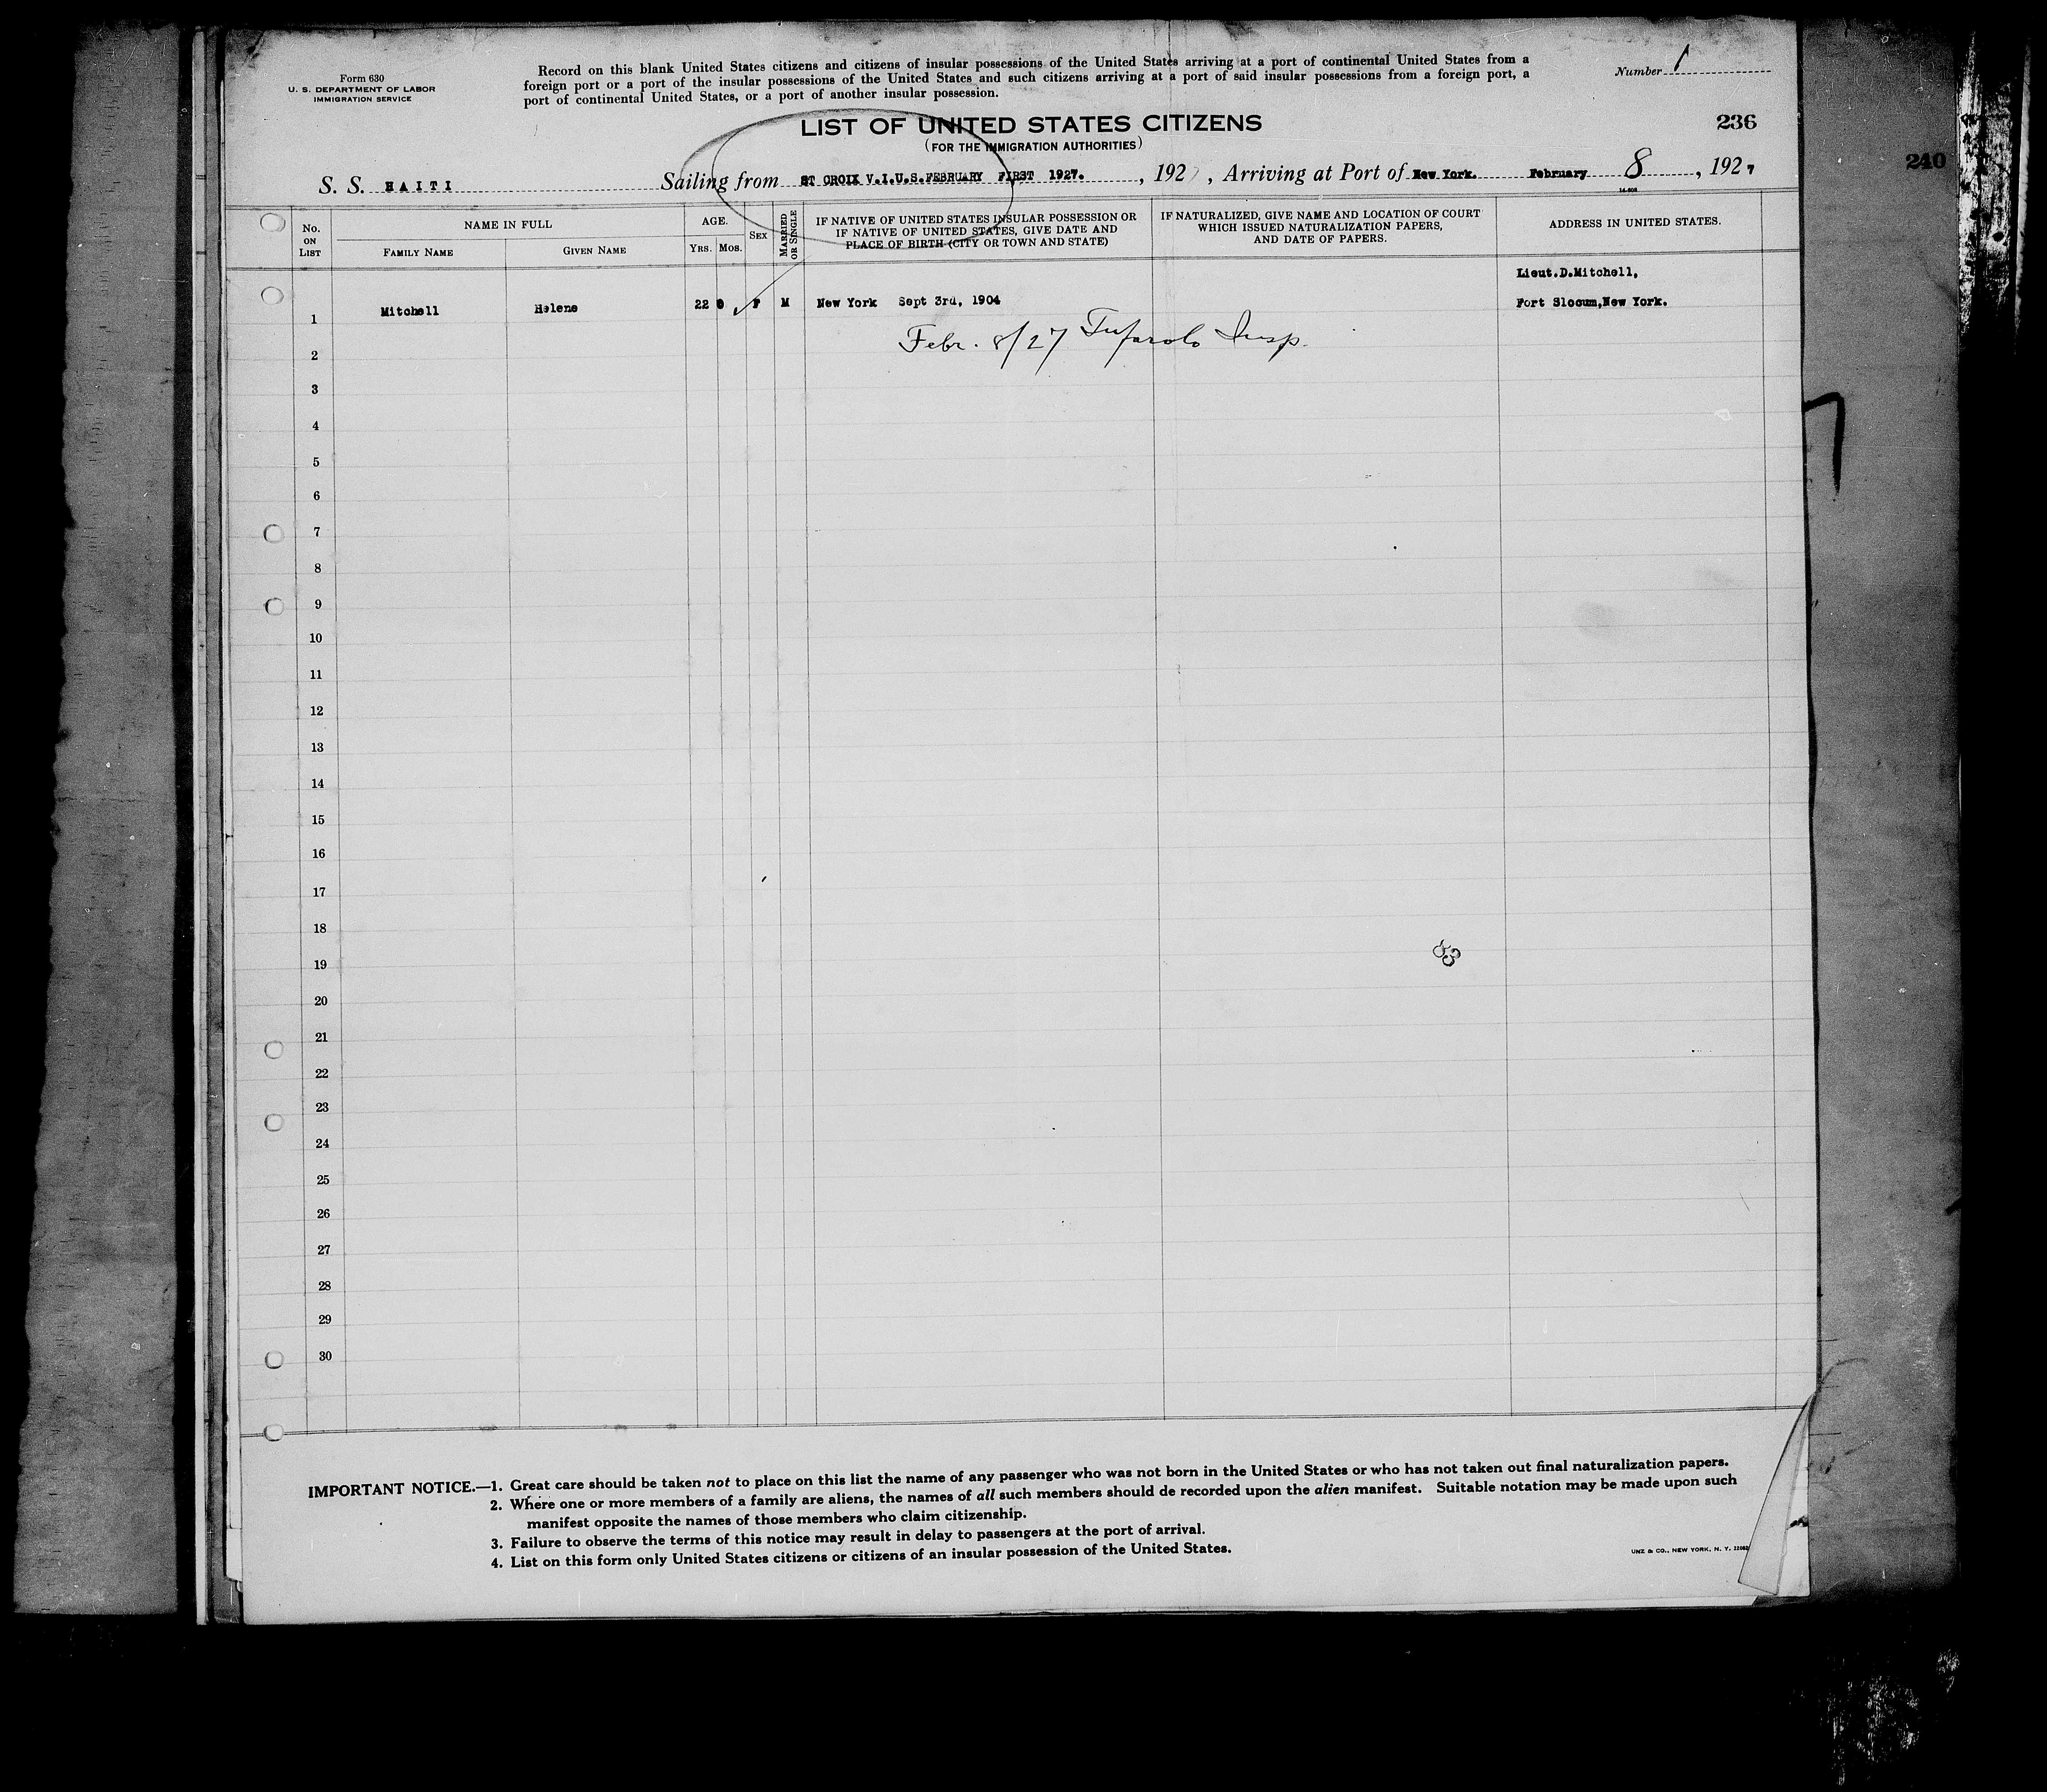 Form 630
U. S. DEPARTMENT OF LABOR
IMMIGRATION SERVICE
Record on this blank United States citizens and citizens of insular possessions of the United States arriving at a port of continental United States from a
foreign port or a port of the insular possessions of the United States and such citizens arriving at a port of said insular possessions from a foreign port, a
port of continental United States, or a port of another insular possession.
Number 1
LIST OF UNITED STATES CITIZENS
(FOR THE IMMIGRATION AUTHORITIES)
236
240
S. S. HAITI Sailing from ST CROIX V.I.U.S. FEBRUARY FIRST 1927. , 192 , Arriving at Port of New York. February 8 , 1927
14-608
No. ON LIST
NAME IN FULL
FAMILY NAME
GIVEN NAME
AGE.
YRS. MOS.
SEX
MARRIED OR SINGLE
IF NATIVE OF UNITED STATES INSULAR POSSESSION OR
IF NATIVE OF UNITED STATES, GIVE DATE AND
PLACE OF BIRTH (CITY OR TOWN AND STATE)
IF NATURALIZED, GIVE NAME AND LOCATION OF COURT
WHICH ISSUED NATURALIZATION PAPERS,
AND DATE OF PAPERS.
ADDRESS IN UNITED STATES.
Lieut.D.Mitchell,
1 Mitchell Helene 22 0 F M New York Sept 3rd, 1904 Fort Slocum,New York.
2 Febr. 8/27 Insp.
3
4
5
6
7
8
9
10
11
12
13
14
15
16
17
18
19
20
21
22
23
24
25
26
27
28
29
30
IMPORTANT NOTICE.—1. Great care should be taken not to place on this list the name of any passenger who was not born in the United States or who has not taken out final naturalization papers.
2. Where one or more members of a family are aliens, the names of all such members should de recorded upon the alien manifest. Suitable notation may be made upon such
manifest opposite the names of those members who claim citizenship.
3. Failure to observe the terms of this notice may result in delay to passengers at the port of arrival.
4. List on this form only United States citizens or citizens of an insular possession of the United States.
UNZ & CO., NEW YORK, N. Y.